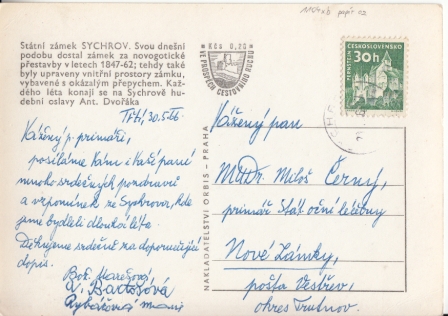 Státní zámek SYCHROV. Svou dnešní
podobu dostal zámek za novogotické
přestavby v letech 1847-62; tehdy také
byly upraveny vnitřní prostory zámku,
vybavené s okázalým přepychem. Kaž-
dého léta konají se na Sychrově hu-
dební oslavy Ant. Dvořáka
Kčs 0,20
VE PROSPĚCH CESTOVNÍHO RUCHU
ČESKOSLOVENSKO
30h
PERNŠTEJN
30.5.66.
Vážený p. primáři,
posíláme Vám i Vaší paní
mnoho srdečných pozdravů
a vzpomínek ze Sychrova, kde
jsme bydleli dlouhá léta.
Děkujeme srdečně za doporučující
dopis.
Bož. Marešová,
V. Bartošová
NAKLADATELSTVÍ ORBIS - PRAHA
Vážený pan
MUDr. Miloš Černý,
primář Stát. oční léčebny
Nové Zámky,
pošta Vestřev,
okres Trutnov.